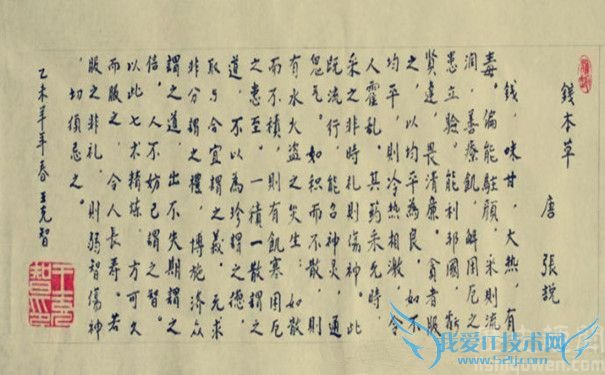 錢本草
唐 張説
錢,味甘,大热,有
毒。偏能駐顔,采則流
潤,善療飢,解困厄之
患立验。能利邦國,虧
賢達,畏清廉。貪者服
之,以均平為良,如不
均平,則冷热相激,令
人霍乱。其药采无時,
采之非時礼則傷神。此
既流行,能召神灵,通
鬼气。如积而不散,則
有水火盗之灾生;如散
而不積,則有飢寒困厄
之患至。一積一散謂之
道,不以為珍謂之德,
取与合宜謂之義,无求
非分謂之禮,博施濟众
謂之道,出不失期謂之
信,人不妨己謂之智。
以此七术精炼,方可久
而服之,令人長寿。若
服之非礼,則弱智傷神
,切须忌之。
乙未羊年春 王克智
我爱IT技术网